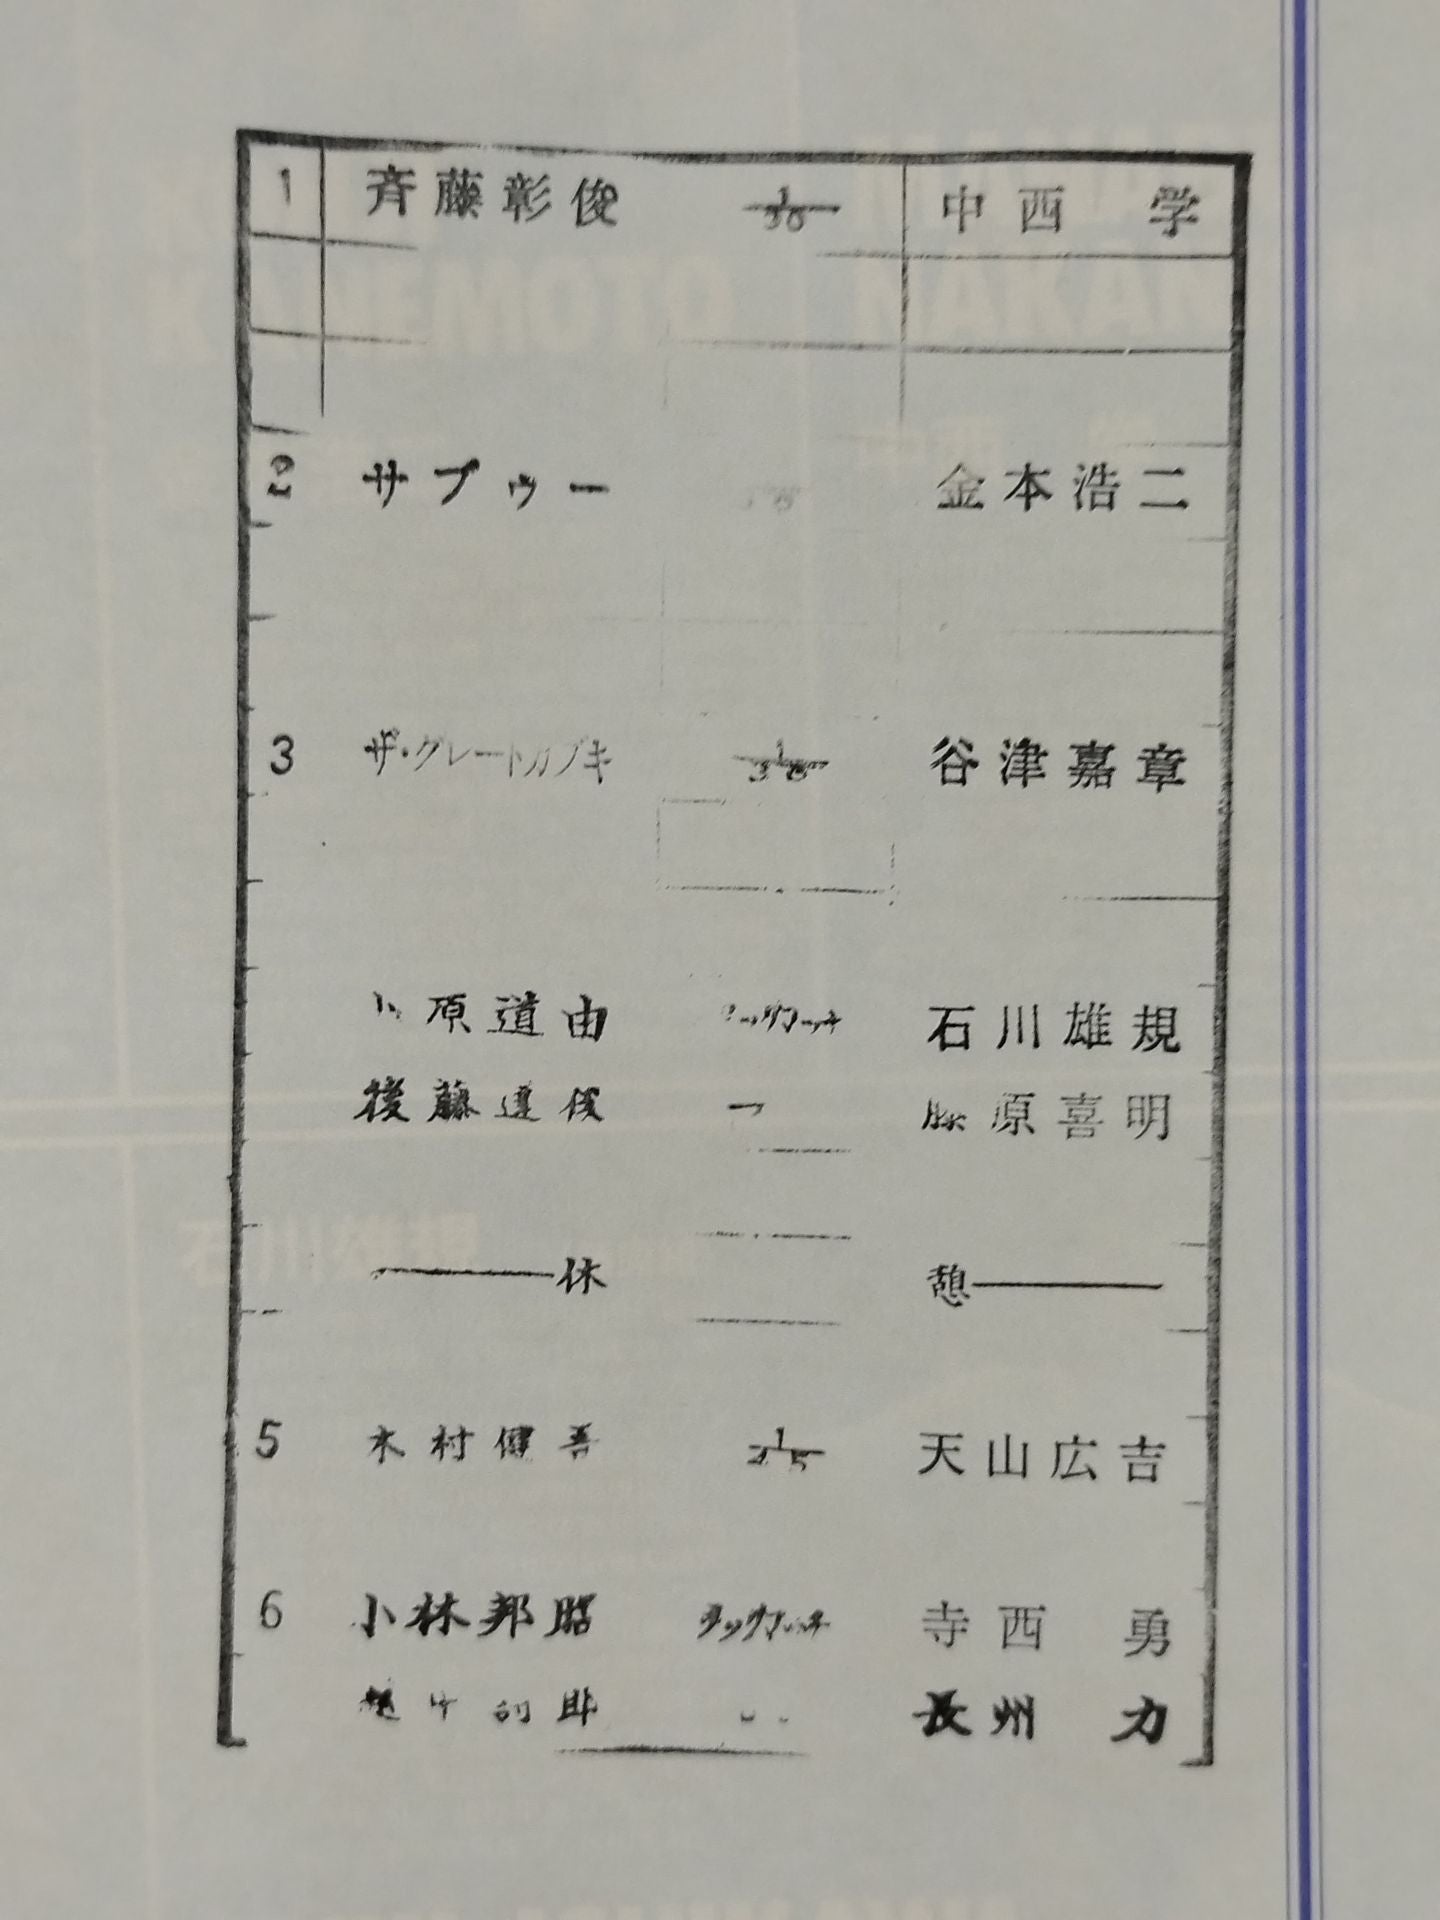 1 斉藤彰俊 1/30 中西 学
2 サブゥー 金本浩二
3 ザ・グレートカブキ 1/30 谷津嘉章
小原道由 タッグマッチ 石川雄規
後藤達俊 藤原喜明
休 憩
5 木村健吾 1/45 天山広吉
6 小林邦昭 タッグマッチ 寺西 勇
長州 力